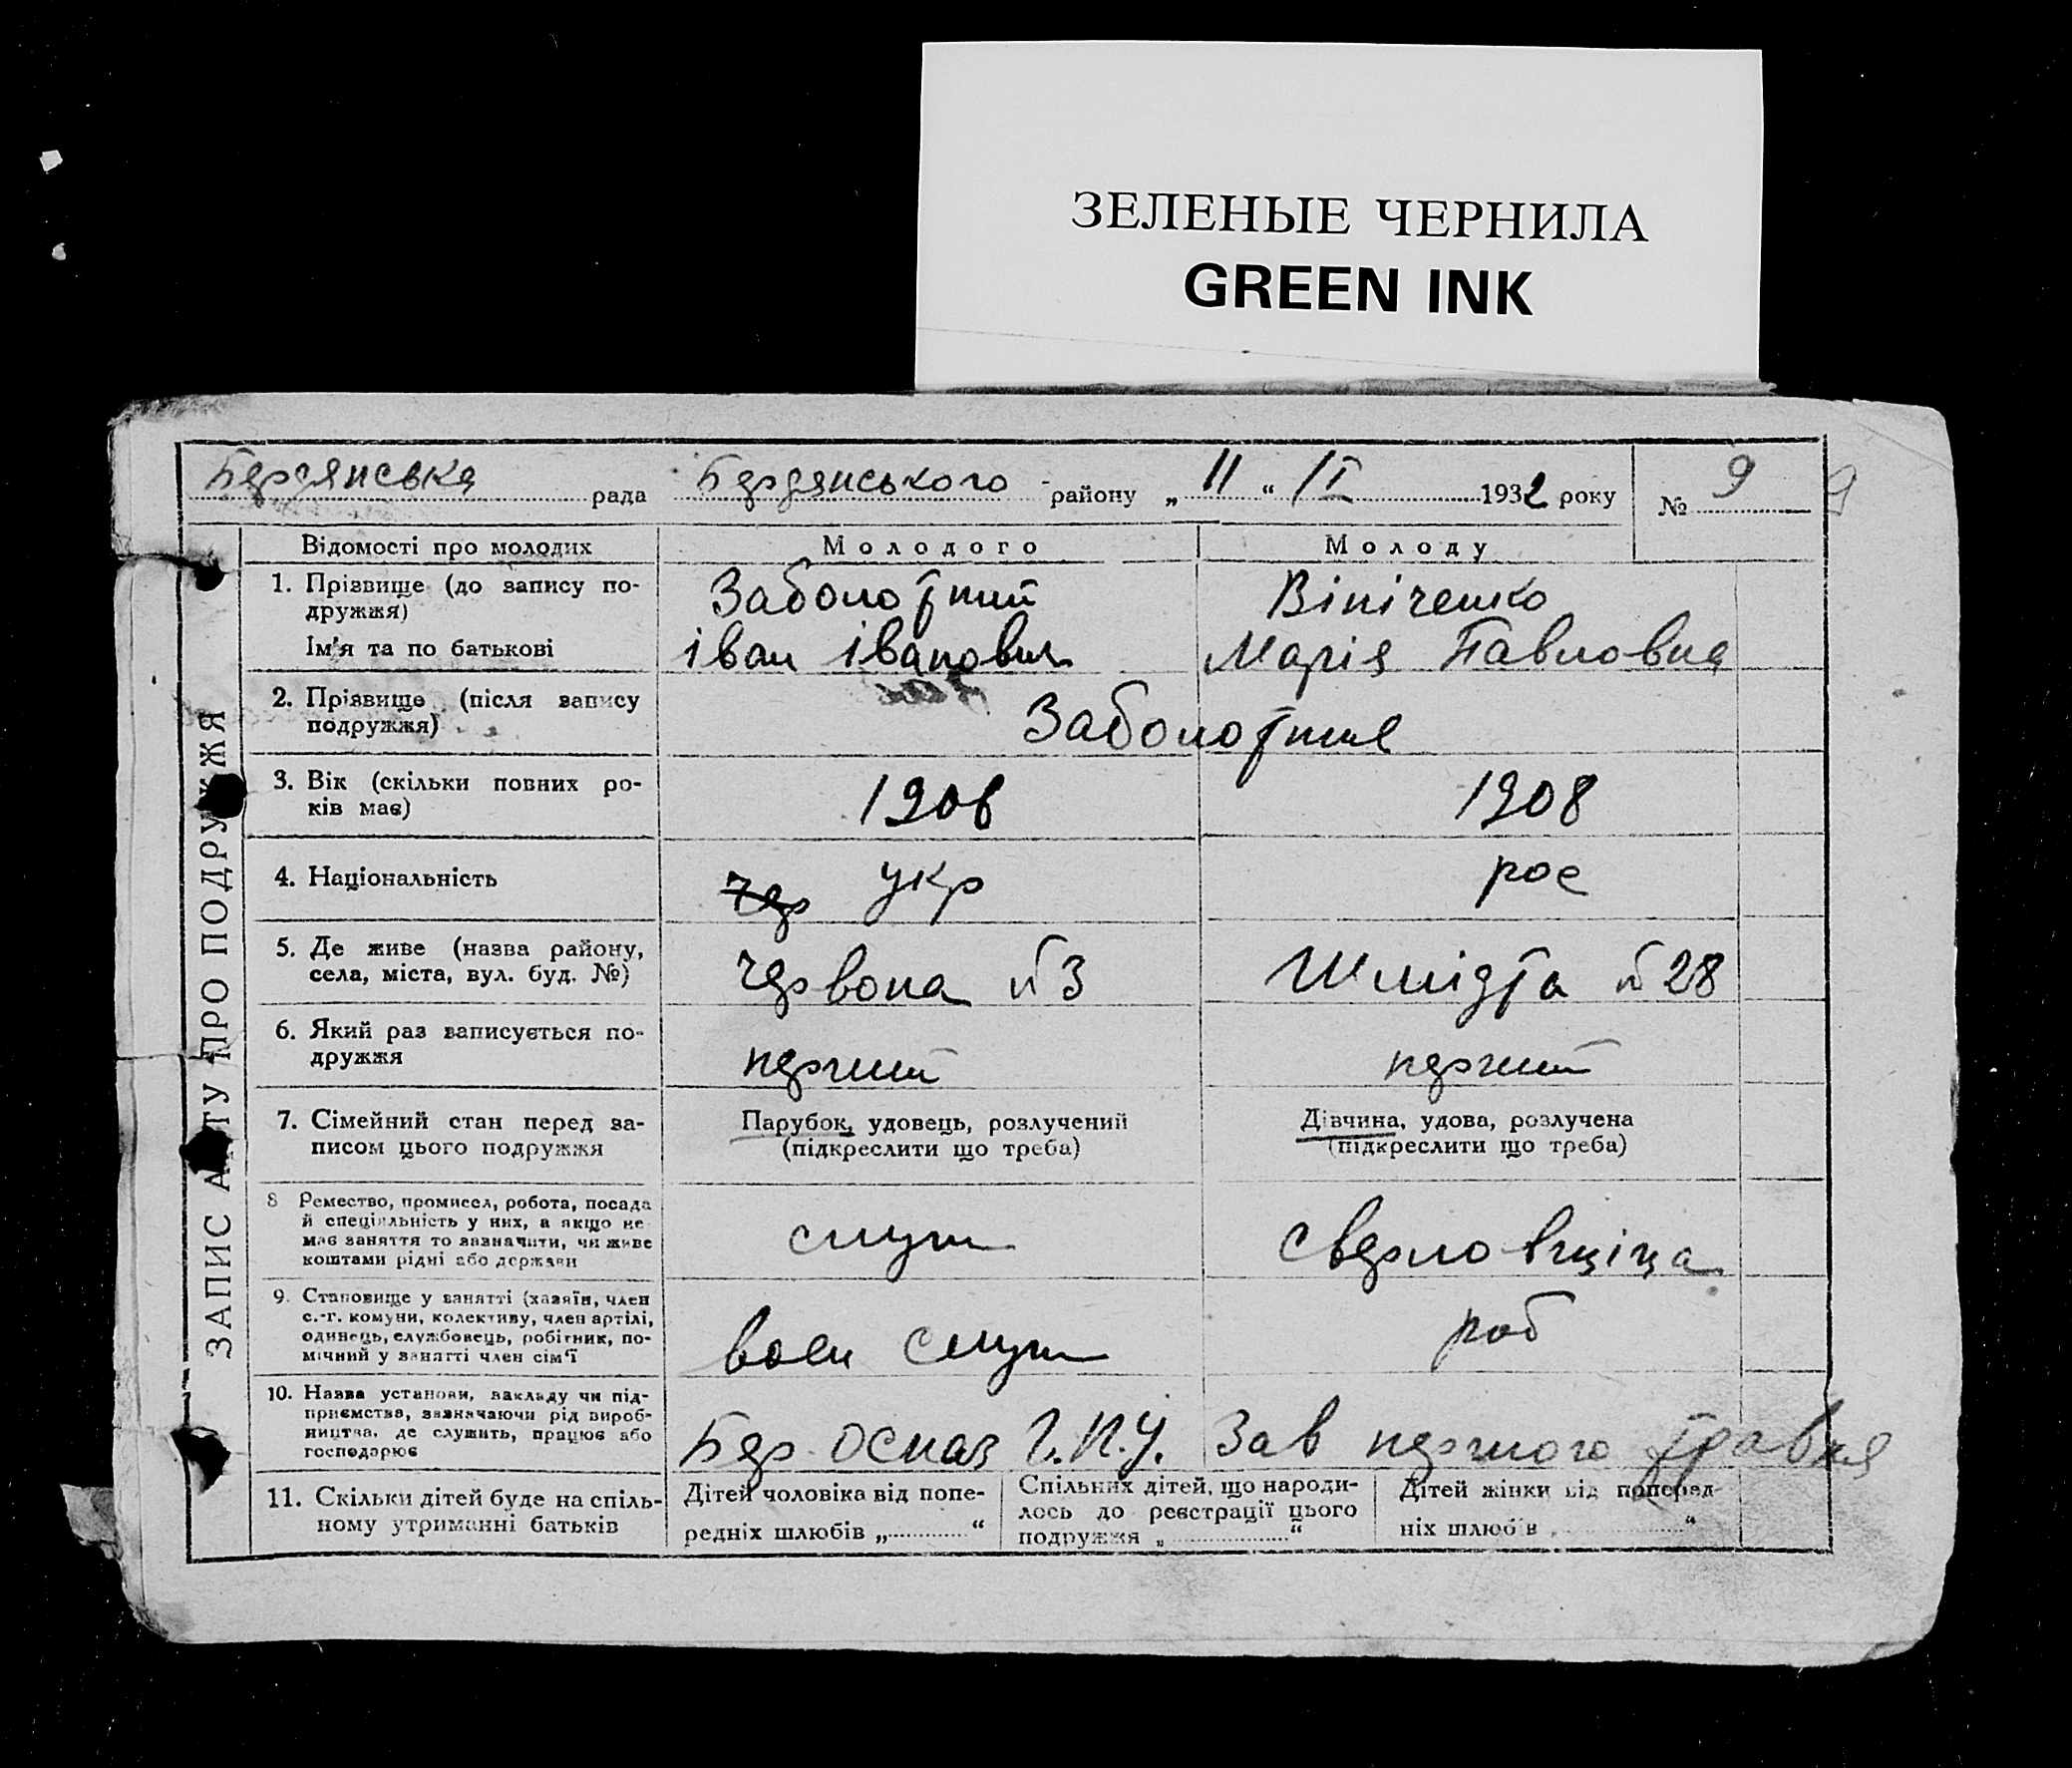 ЗЕЛЕНЫЕ ЧЕРНИЛА
GREEN INK
Бердянська рада Бердянського району „ 11 “ II 1932 року № 9 9
ЗАПИС АКТУ ПРО ПОДРУЖЖЯ
Відомості про молодих Молодого Молоду
1. Прізвище (до запису по- Заболотний Вініченко
дружжя)
Ім'я та по батькові Іван Іванович Марія Павловна
2. Прізвище (після запису Заболотние
подружжя)
3. Вік (скільки повних ро- 1906 1908
ків має)
4. Національність чер укр рос
5. Де живе (назва району, Червона № 3 Шмідта № 28
села, міста, вул. буд. №)
6. Який раз записується по- перший перший
дружжя
7. Сімейний стан перед за- Парубок, удовець, розлучений Дівчина, удова, розлучена
писом цього подружжя (підкреслити що треба) (підкреслити що треба)
8 Ремество, промисел, робота, посада
й спеціяльність у них, а якщо не
має заняття то зазначити, чи живе служ сверловщіца
коштами рідні або держави
9. Становище у занятті (хазяїн, член
с.-г. комуни, колективу, член артілі,
одинець, службовець, робітник, по- воен служ роб
мічний у занятті член сім'ї
10. Назва установи, закладу чи під-
приємства, зазначаючи рід вироб-
ництва, де служить, працює або Бер. осназ Г.П.У. Зав першого травня
господарює
11. Скільки дітей буде на спіль- Дітей чоловіка від попе- Спільних дітей, що народи- Дітей жінки від поперед-
ному утриманні батьків редніх шлюбів „ “ лось до реєстрації цього ніх шлюбів „ “
подружжя „ “